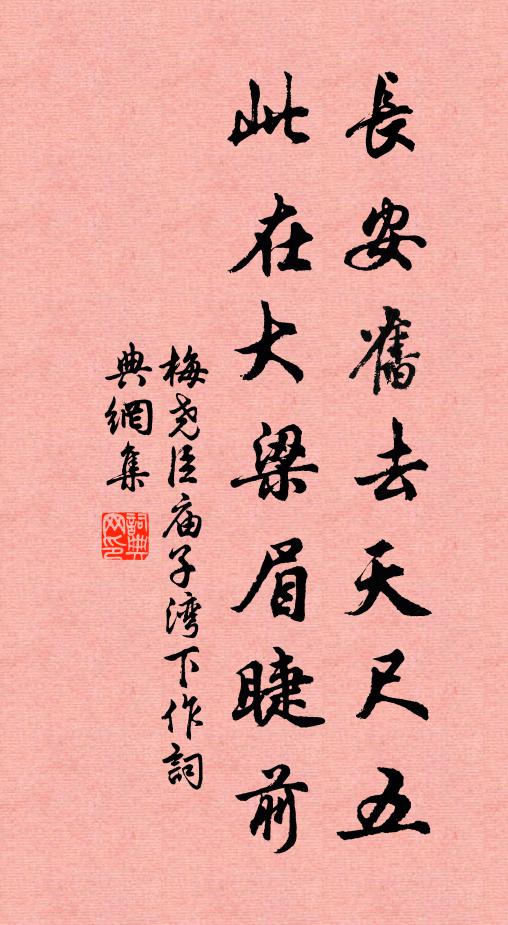 長安舊去天尺五
此在大梁眉睫前
梅尧臣庙子湾下作詞
典網集
詞典網印